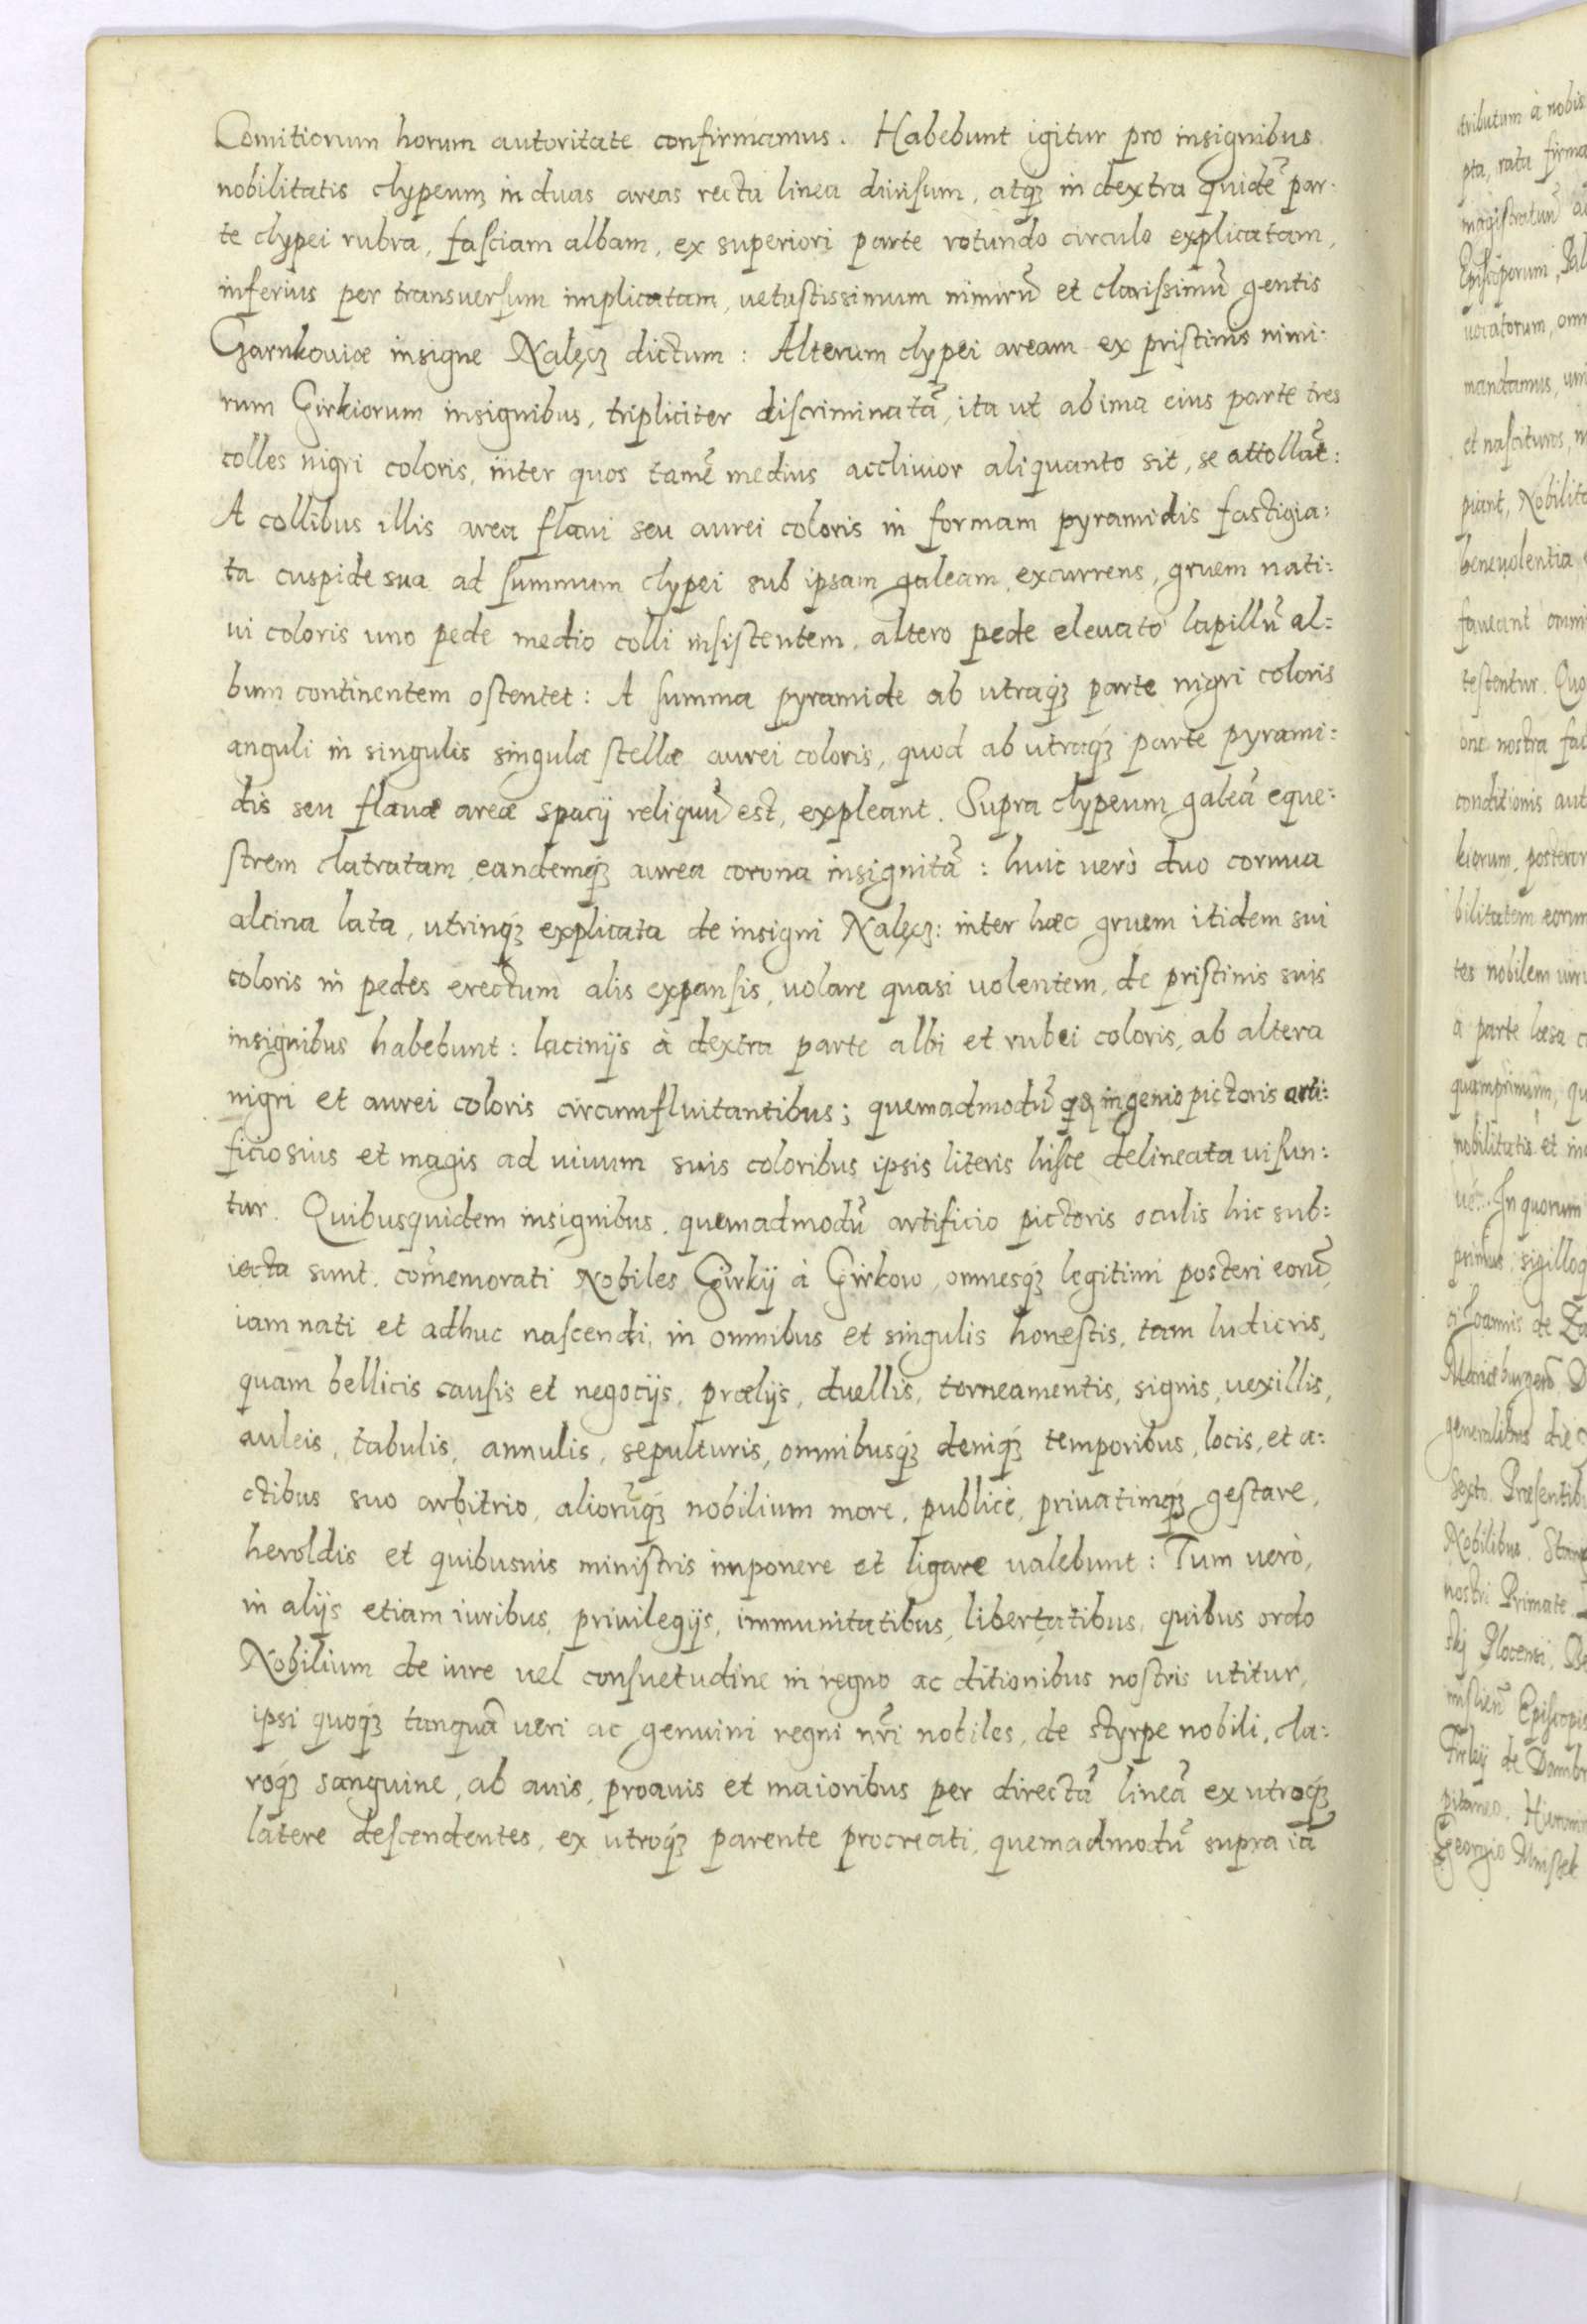 Comitiorum horum autoritate confirmamus. Habebunt igitur pro insignibus
nobilitatis clypeum in duas areas recta linea diuisum, atq́ꝫ in dextra quidẽ par:
te clypei rubra, fasciam albam, ex superiori parte rotundo circulo explicatam,
inferius per transuersum implicatam, uetustissimum nimirũ et clarissimũ gentis
Czarnkouiæ insigne Nalęcz dictum: Alterum clypei aream ex pristinis nimi:
rum Girkiorum insignibus, tripliciter discriminatã, ita ut ab ima eius parte tres
colles nigri coloris, inter quos tamẽ medius accliuior aliquanto sit, se attollãt:
A collibus illis area flaui seu aurei coloris in formam pyramidis fastigia:
ta cuspide sua ad summum clypei sub ipsam galeam excurrens, gruem nati:
ui coloris uno pede medio colli insistentem, altero pede eleuato lapillũ al:
bum continentem ostentet: A summa pyramide ab utraq́ꝫ parte nigri coloris
anguli in singulis singulæ stellæ aurei coloris, quod ab utraq́ꝫ parte pyrami:
dis seu flauæ areæ spacij reliquũ est, expleant. Supra clypeum galeã eque:
strem clatratam eandemq́ꝫ aurea corona insignitã: huic uerò duo cornua
alcina lata, utrinq́ꝫ explicata de insigni Nalęcz: inter hæc gruem itidem sui
coloris in pedes erectum alis expansis, uolare quasi uolentem, de pristinis suis
insignibus habebunt: lacinijs à dextra parte albi et rubei coloris, ab altera
nigri et aurei coloris circumfluitantibus; quemadmodũ ingenio pictoris arti:
ficiosius et magis ad uiuum suis coloribus ipsis literis hisce delineata uisun:
tur. Quibusquidem insignibus, quemadmodũ artificio pictoris oculis hic sub:
iecta sunt, com̃emorati Nobiles Girkij à Girkow, omnesq́ꝫ legitimi posteri eorũ,
iam nati et adhuc nascendi, in omnibus et singulis honestis, tam ludicris,
quam bellicis causis et negocijs, prælijs, duellis, torneamentis, signis, uexillis,
auleis, tabulis, annulis, sepulturis, omnibusq́ꝫ deniq́ꝫ temporibus, locis, et a:
ctibus suo arbitrio, aliorũq́ꝫ nobilium more, publicè, priuatimq́ꝫ gestare,
heroldis et quibusuis ministris imponere et ligare ualebunt: Tum uerò,
in alijs etiam iuribus, priuilegijs, immunitatibus, libertatibus, quibus ordo
Nobilium de iure uel consuetudine in regno ac ditionibus nostris utitur,
ipsi quoq́ꝫ tanquã ueri ac genuini regni nr̃i nobiles, de styrpe nobili, cla:
roq́ꝫ sanguine, ab auis, proauis et maioribus per directã lineã ex utroq́ꝫ
latere descendentes, ex utroq́ꝫ parente procreati, quemadmodũ supra iã
tributum à nobis
pta, rata firma
magistratuũ
Episcoporum, Pal
uocatorum, omn
mandamus, uni
et nascituros,
piant, Nobilit
beneuolentia
faueant omni
testentur. Quo
one nostra fac
conditionis aut
kiorum, posteror
bilitatem eorum
tes nobilem uiri
a parte læsa
quamprimum, qu
nobilitatis et
In quorum
primus, sigilloq
Ioannis de Za
Mariæburgen̄
generalibus die
Sexto. Præsentib
Nobilibus. Stan
nostri Primate
skj Plocensi,
Episcopis
Firlej de Dombr
pitaneo. Hieroni
Georgio Mniszek